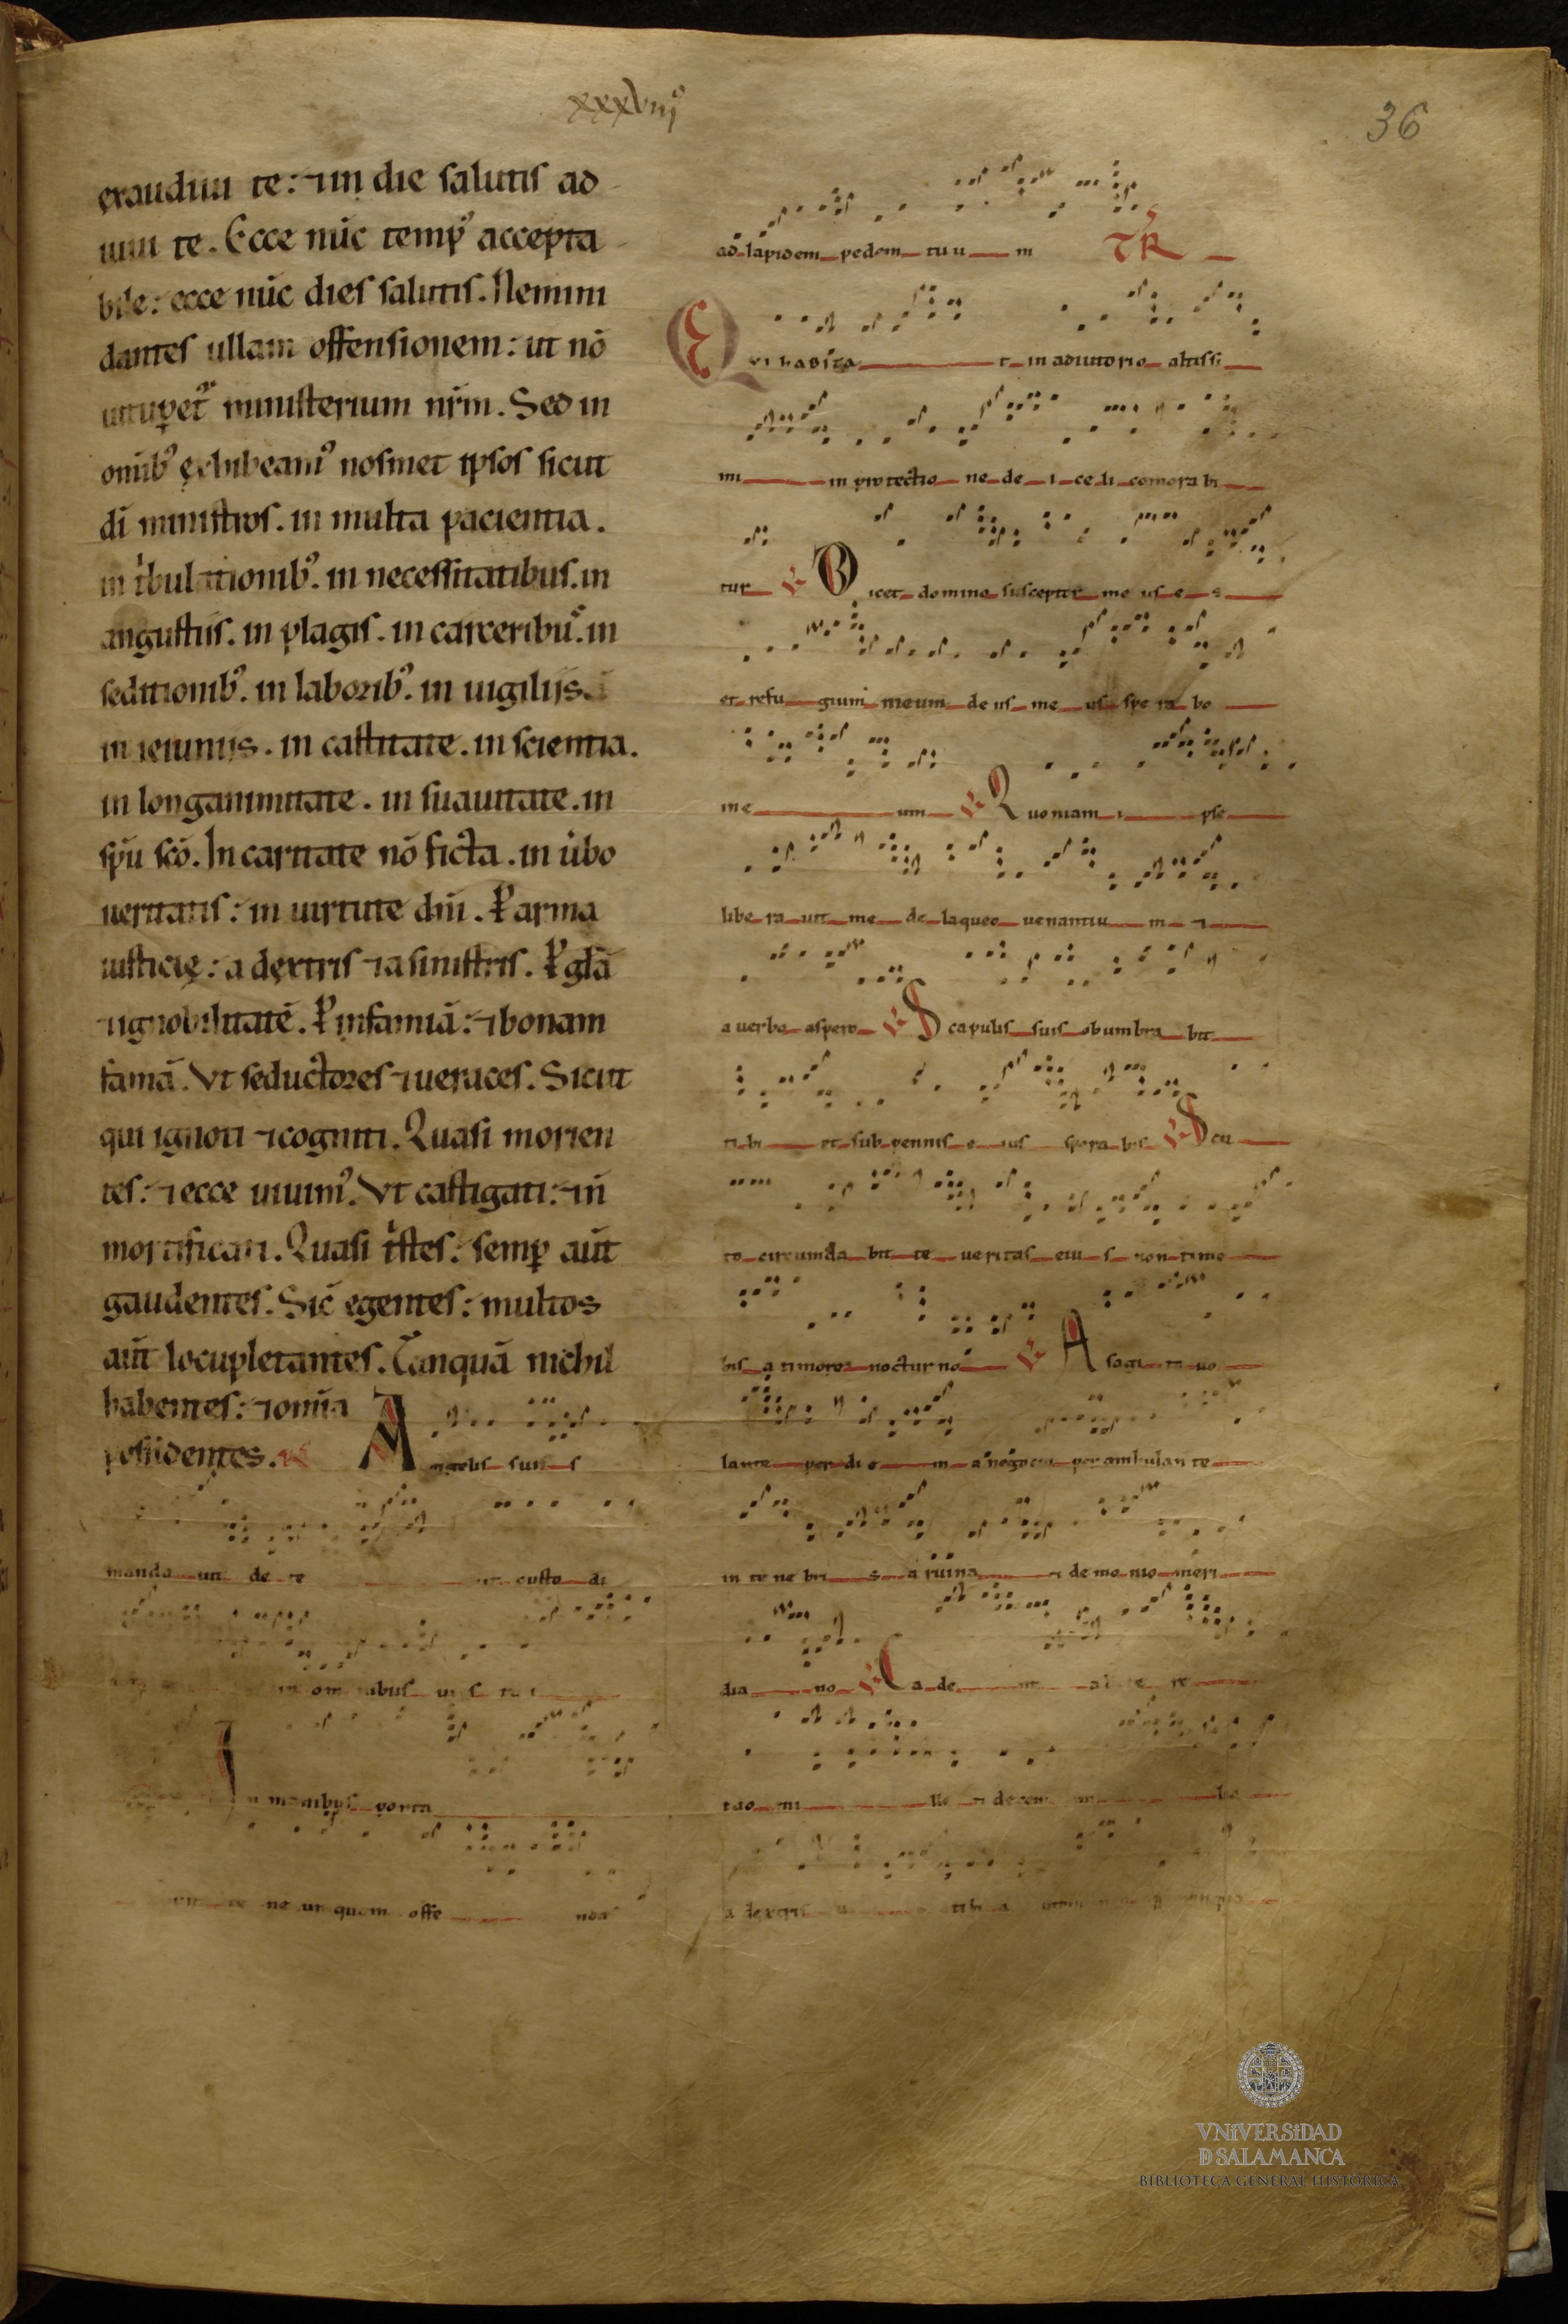 xxxviijº
36
exaudiui te: ⁊ in die salutis ad
iuui te. Ecce nūc tempꝰ accepta
bile: ecce nūc dies salutis. Nemini
dantes ullam offensionem: ut nō
uituꝑet᷑ ministerium nr̄m. Sed in
omībꝰ exhibeamꝰ nosmet ipsos sicut
dī ministros. in multa pacientia.
in tͥbulationibꝰ. in necessitatibus. in
angustiis. in plagis. in carceribus. in
seditionibꝰ. in laboribꝰ. in uigilijs.
in ieiunijs. in castitate. in scientia.
in longanimitate. in suauitate. in
sp̄u scō. In caritate nō ficta. in ūbo
ueritatis: in uirtute dn̄i. ꝑ arma
iusticię: a dextris ⁊ a sinistris. ꝑ glām
⁊ ignobilitatē. ꝑ infamiā: ⁊ bonam
famā. Vt seductores ⁊ ueraces. Sicut
qui ignoti ⁊ cogniti. Quasi morien
tes: ⁊ ecce uiuimꝰ. Vt castigati: ⁊ n̄
mortificati. Quasi tͥstes: semꝑ aūt
gaudentes. Sic̄ egentes: multos
aūt locupletantes. Tanquā nichil
habentes: ⁊ omīa
possidentes. R Angelis suis
manda uit de te ut custo di
in om nibus uiis tu i
In manibus porta
te ne un quam offe nda
ad lapidem pedem tuu m TR
Qui habita t in adiutorio altissi
mi in protectio ne de i celi comora bi
tur V Dicet domino susceptor me us e s
et refu gium meum de us me us spe ra bo
in e um V Quoniam i pse
libe ra uit me de laqueo uenantiu m ⁊
a uerbo aspero V Scapulis suis obumbra bit
ti bi et sub pennis e ius spera bis V Scu
to circumda bit te ueritas eiu s non time
bis a timore nocturno V A sagi ta uo
lante per di e m a negocio perambulan te
in te ne bri s a ruina ⁊ demo nio meri
dia no V Ca de nt a la te re
tuo mi lle ⁊ decem mi lia
a dextris tuis tibi a utem non
VNiVERSiDAD
D SALAMANCA
BIBLIOTECA GENERAL HISTÓRICA